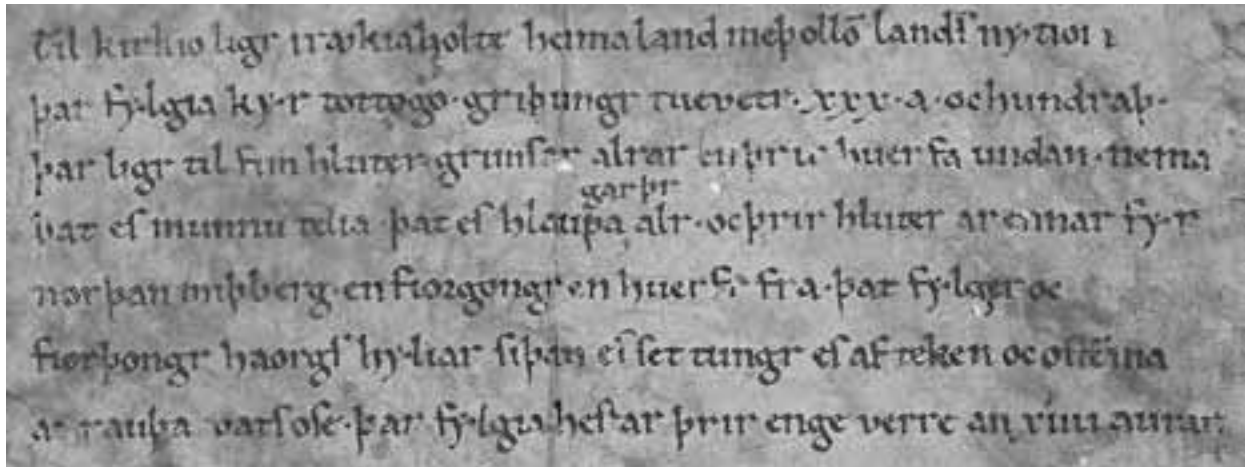 til kirkio ligr i ꝛaykiaholte heimaland meþ ollō landſ ny·tiom
þar fẏ·lgia kẏ·r tottogo·griþungr tuevetr·xxx·a·oc hundraþ·
þar ligr til fim hluter·grimſar alrar en þrir huerfa undan·nema
þat eſ munnu telia þat eſ hlaupa garþr alr·oc þrir hluter ar ennar fẏ·r
norþan miþberg·en fiorþongr en huerfr fra·þat fẏ·lger oc
fiorþongr haorgſ hẏ·liar ſiþan ſettungr eſ af teken oc
a rauþa vatſ oſe·þar fẏ·lgia heſtar þrir enge verre an xiiii aurar